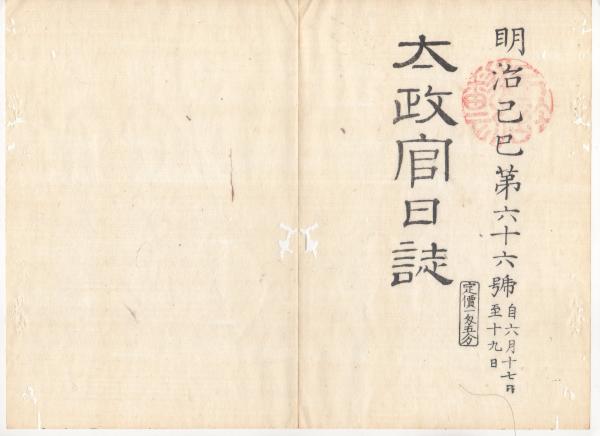 明治己巳第六十六號
自六月十七日
至十九日
太政官日誌
定價一匁五分